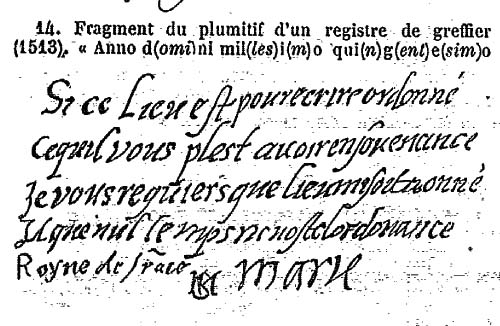 14. Fragment du plumitif d'un registre de greffier
(1513). « Anno d(omi)ni mil(les)i(m)o qui(n)g(ent)e(sim)o
Si ce Lieu est pour ecrire ordonné
Ce quil vous plest auoir en souenance
Je vous requiers que lieu mi soet donné
Et que nul temps nen oste lordonance
Royne de france Marie